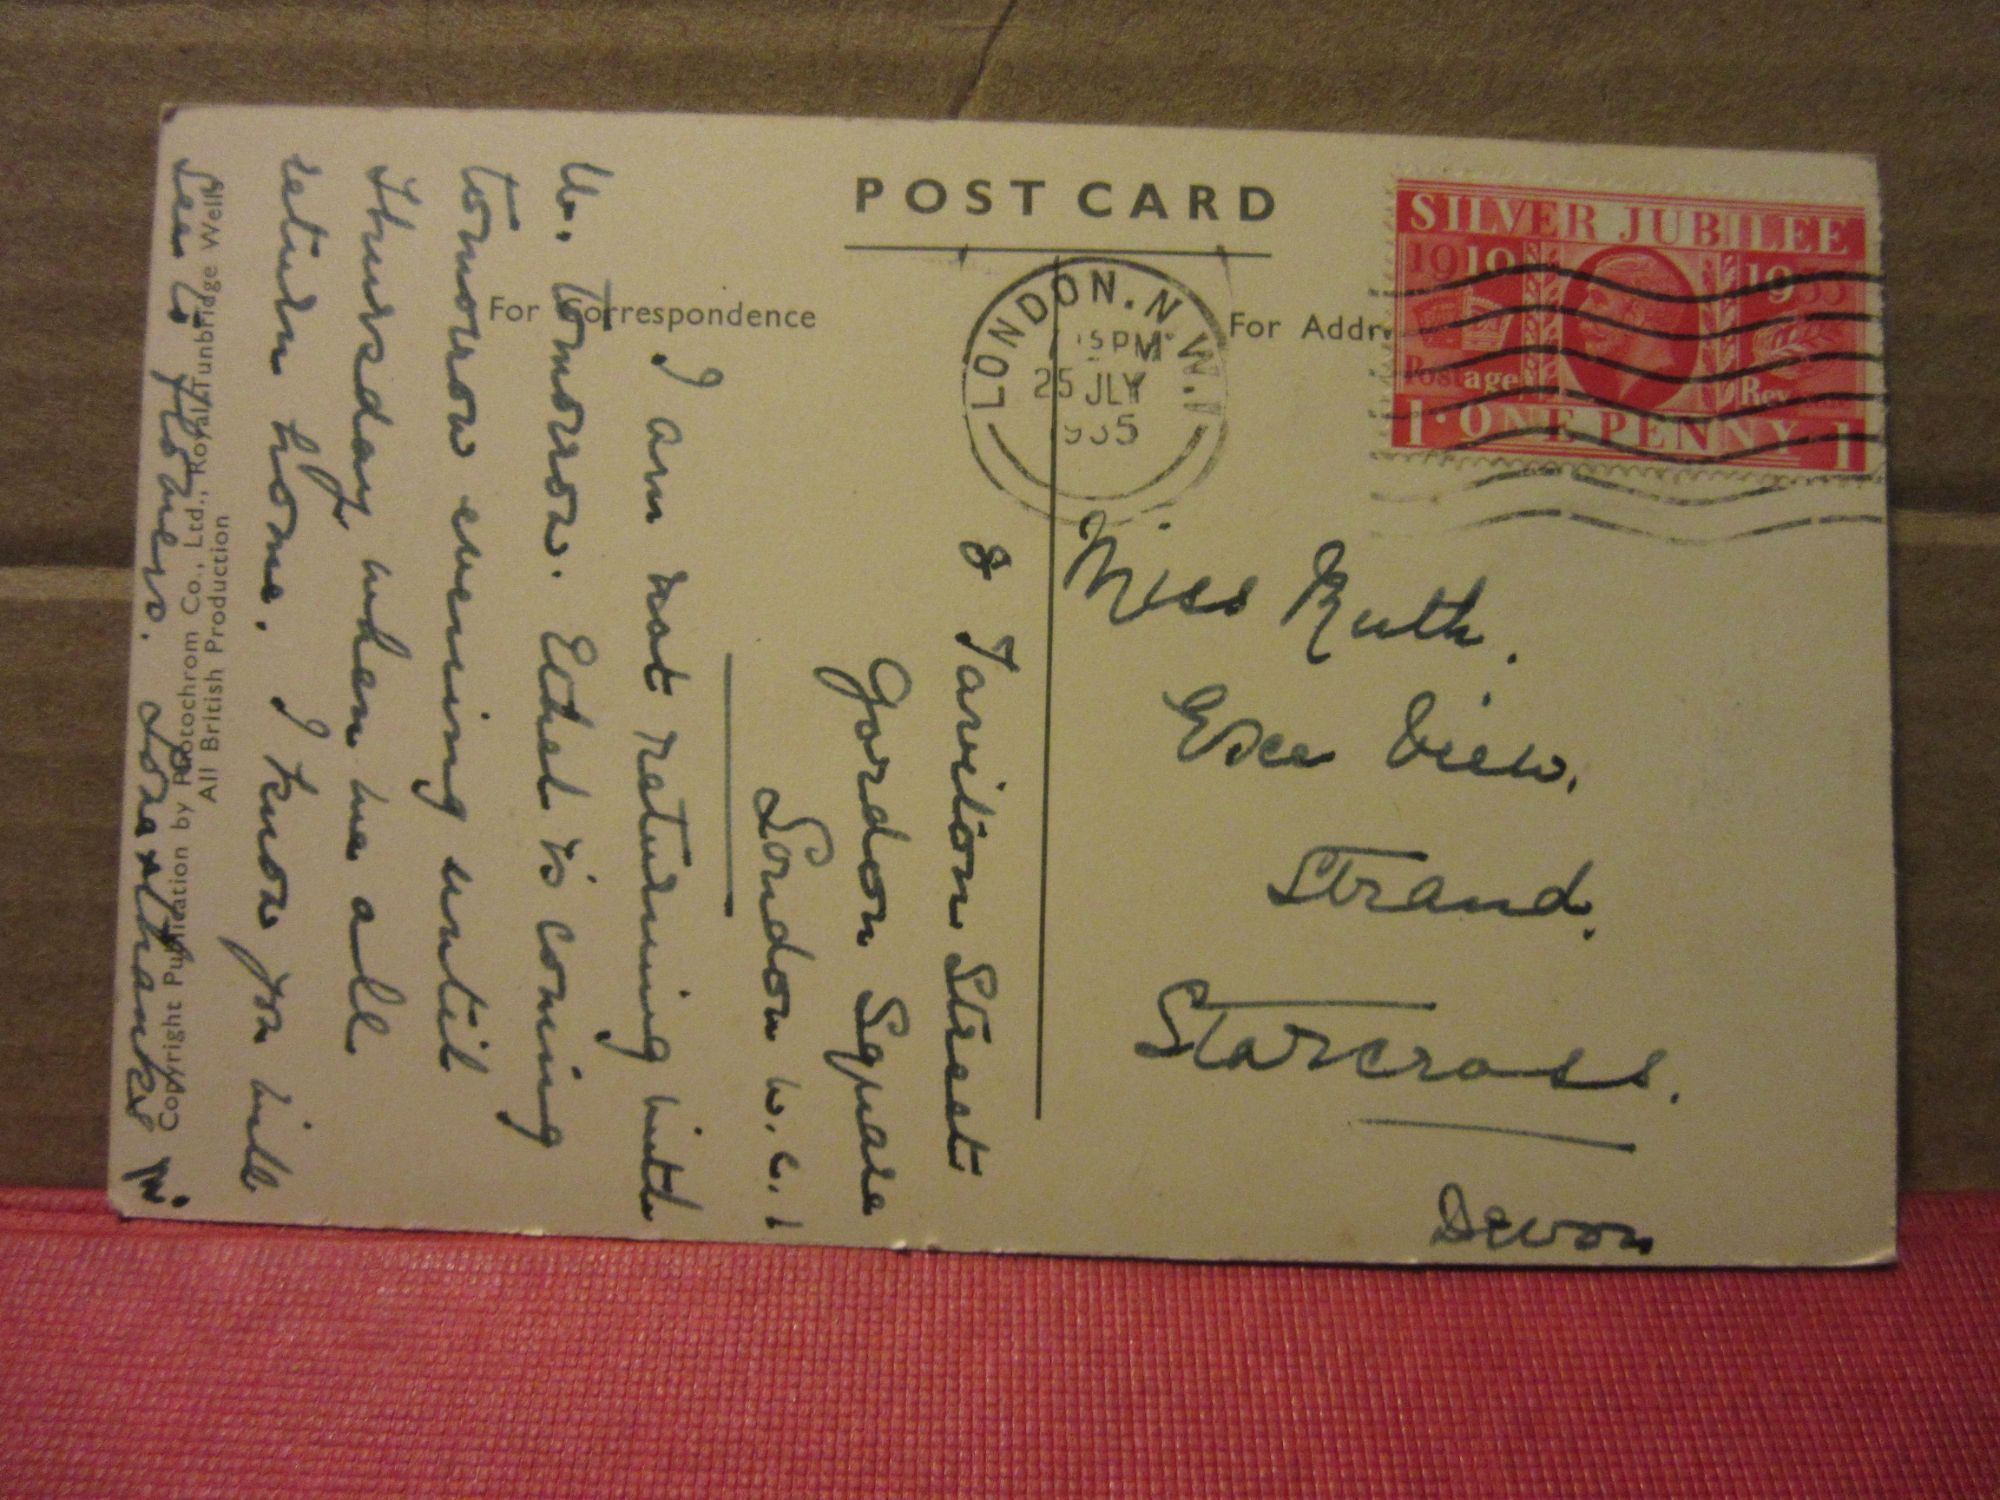 POST CARD
For Correspondence
For Addr
SILVER JUBILEE
1910 1935
Postage Rev
1 · ONE PENNY 1
LONDON. N.W.1
15 PM
25 JLY
1935
Miss Ruth.
Exe View.
Strand.
Starcross.
Devon
8 Taviton Street
Gordon Square
London W.C.1
I am not returning with
W. tomorrow. Ethel is coming
tomorrow evening until
Thursday when we all
return home. I know you will
see to flowers. Love & thanks
W.
Copyright Publication by Photochrom Co., Ltd., Royal Tunbridge Wells
All British Production